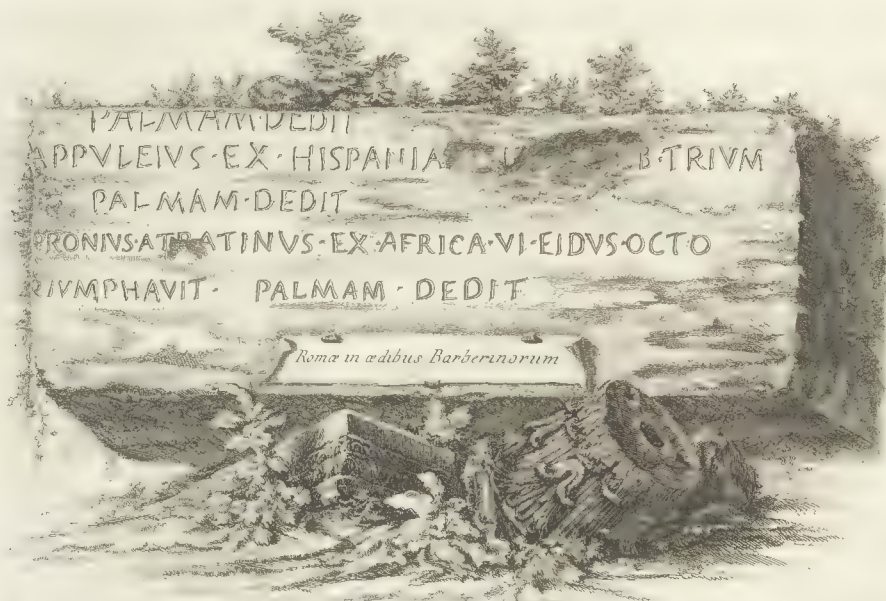 PALMAM·DEDIT
APPVLEIVS·EX·HISPANIA TRIVM
PALMAM·DEDIT
PRONIVS·ATRATINVS·EX·AFRICA·VI·EIDVS·OCTO
RIVMPHAVIT· PALMAM·DEDIT
Romæ in ædibus Barberinorum